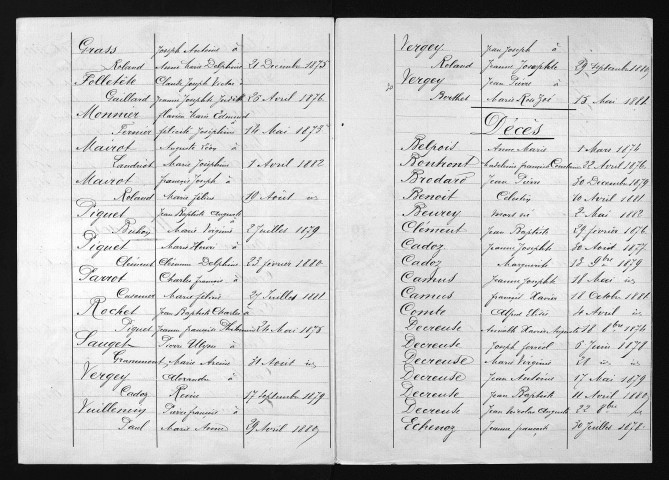 Grass Joseph Antoine à
Roland Anne Marie Delphine 21 Decembre 1875
Folletête Claude Joseph Victor à
Gaillard Jeanne Josephte 25 Avril 1876
Monnier Flavien Marie Edmond à
Ternier Felicité Joséphine 12 Mai 1873
Mairot Auguste à
Landriot Marie Joséphine 1 Avril 1882
Mairot François Joseph à
Roland Marie 19 Août id
Piguet Jean Baptiste Auguste à
Marie Virginie 2 Juillet 1879
Piguet Marie Henri à
Clément Cléonice Delphine 23 février 1880
Parrot Charles François à
Cusenier Marie 27 Juillet 1881
Rochet Jean Baptiste Charles à
Piguet Jeanne Françoise Philomène 24 Mai 1878
Sauget Pierre Ulysse à
Grammont Marie 31 Août id
Vergey Alexandre à
Cadoz Reine 17 Septembre 1879
Vuillemin Pierre François à
Paul Marie 29 Avril 1880
Vergey Jean Joseph à
Roland Jeanne Josephte 29 Septembre 1880
Vergey Jean Pierre à
Berthet Marie Rose Zoé 15 Mai 1881
Décès
Belpois Anne Marie 1 Mars 1874
Bonhont François 22 Avril 1876
Brodard Jean Pierre 30 Decembre 1879
Benoit Célestin 10 Avril 1881
Beurey mort né 2 Mai 1882
Clément Jean Baptiste 29 février 1876
Cadoz Jeanne Josephte 30 Août 1877
Cadoz Marguerite 13 9bre 1879
Camus Jeanne Josephte 18 Mai id
Camus François Xavier 18 Octobre 1881
Comte 4 Avril id
Decreuse Xavier Auguste 18 9bre 1874
Decreuse Joseph 6 Juin 1878
Decreuse Marie Virginie 21 id id
Decreuse Jean Antoine 17 Mai 1879
Decreuse Jean Baptiste 11 Avril 1880
Decreuse Jean Nicolas Auguste 22 8bre id
Echenoz Jeanne Françoise 30 Juillet 1878